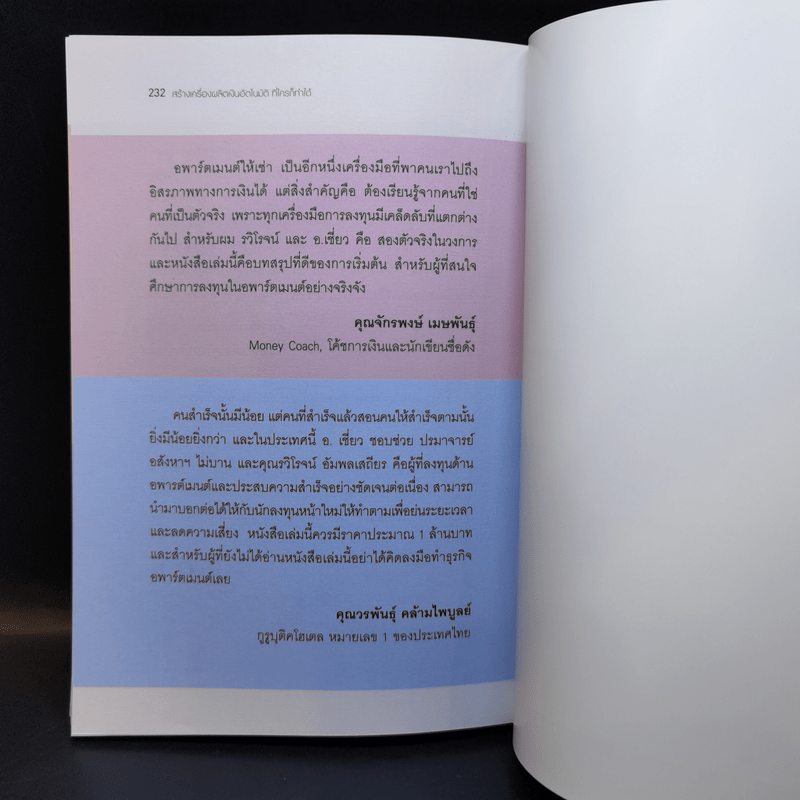 232 สร้างเครื่องผลิตเงินอัตโนมัติ ที่ใครก็ทำได้
อพาร์ตเมนต์ให้เช่า เป็นอีกหนึ่งเครื่องมือที่พาคนเราไปถึง
อิสรภาพทางการเงินได้ แต่สิ่งสำคัญคือ ต้องเรียนรู้จากคนที่ใช่
คนที่เป็นตัวจริง เพราะทุกเครื่องมือการลงทุนมีเคล็ดลับที่แตกต่าง
กันไป สำหรับผม รวิโรจน์ และ อ.เชี่ยว คือ สองตัวจริงในวงการ
และหนังสือเล่มนี้คือบทสรุปที่ดีของการเริ่มต้น สำหรับผู้ที่สนใจ
ศึกษาการลงทุนในอพาร์ตเมนต์อย่างจริงจัง
คุณจักรพงษ์ เมษพันธุ์
Money Coach, โค้ชการเงินและนักเขียนชื่อดัง
คนสำเร็จนั้นมีน้อย แต่คนที่สำเร็จแล้วสอนคนให้สำเร็จตามนั้น
ยิ่งมีน้อยยิ่งกว่า และในประเทศนี้ อ. เชี่ยว ชอบช่วย ปรมาจารย์
อสังหาฯ ไม่บาน และคุณรวิโรจน์ อัมพลเสถียร คือผู้ที่ลงทุนด้าน
อพารต์เมนต์และประสบความสำเร็จอย่างชัดเจนต่อเนื่อง สามารถ
นำมาบอกต่อได้ให้กับนักลงทุนหน้าใหม่ให้ทำตามเพื่อย่นระยะเวลา
และลดความเสี่ยง หนังสือเล่มนี้ควรมีราคาประมาณ 1 ล้านบาท
และสำหรับผู้ที่ยังไม่ได้อ่านหนังสือเล่มนี้อย่าได้คิดลงมือทำธุรกิจ
อพาร์ตเมนต์เลย
คุณวรพันธุ์ คล้ามไพบูลย์
กูรูบูติคโฮเตล หมายเลข 1 ของประเทศไทย